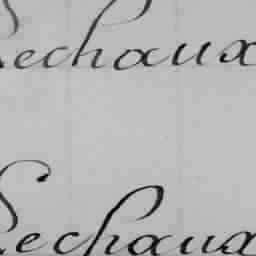 Lechaux
Lechaux